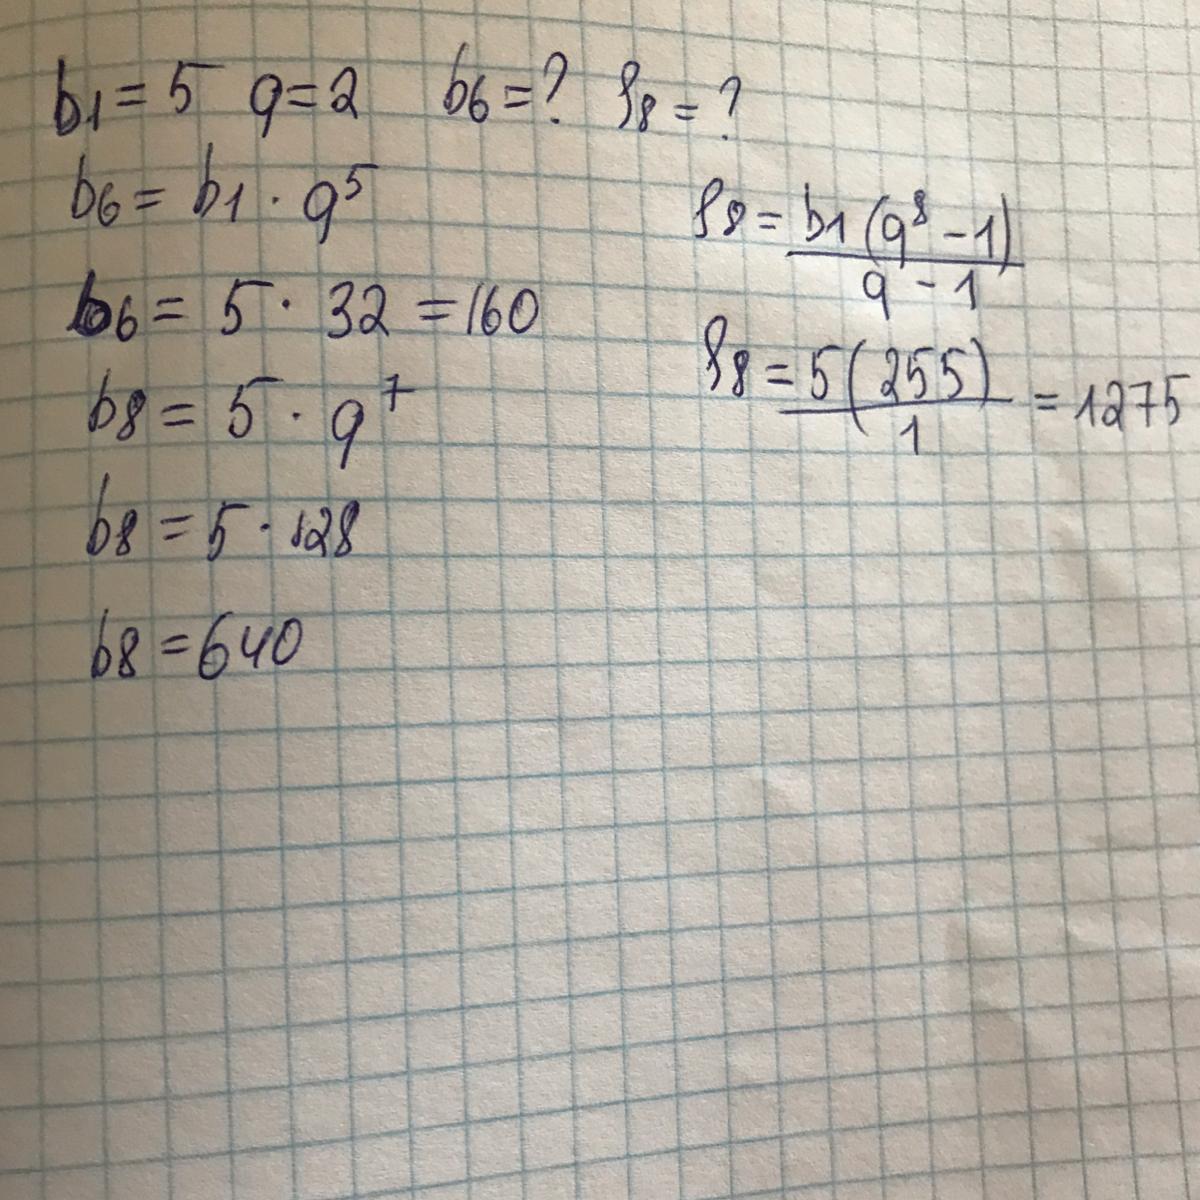 b1 = 5 q = 2 b6 = ? S8 = ?
b6 = b1 · q^5
b6 = 5 · 32 = 160
b8 = 5 · q^7
b8 = 5 · 128
b8 = 640
S8 = b1 (q^8 - 1) / q - 1
S8 = 5 (255) / 1 = 1275